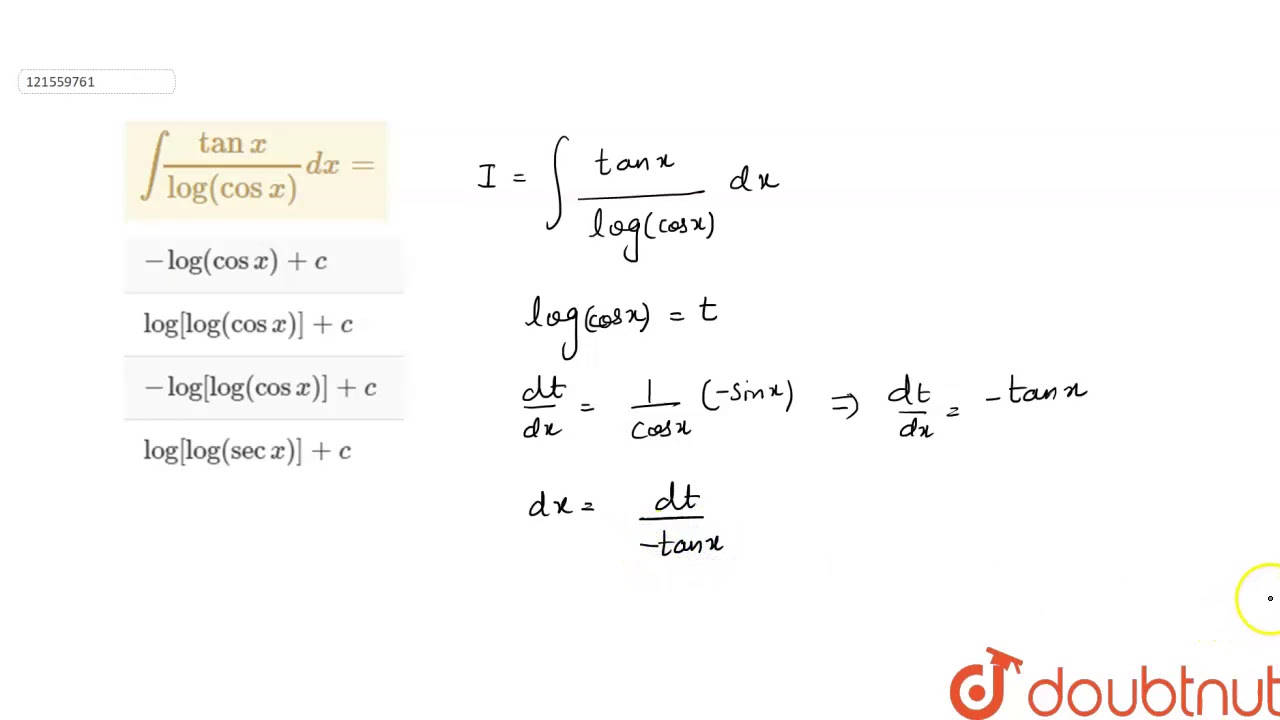 121559761
∫ tan x / log(cos x) dx =
− log(cos x) + c
log[log(cos x)] + c
− log[log(cos x)] + c
log[log(sec x)] + c
I = ∫ tanx / log(cosx) dx
log(cosx) = t
dt/dx = 1/cosx (-sinx) ⇒ dt/dx = -tanx
dx = dt / -tanx
doubtnut